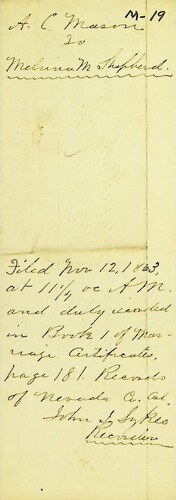 M-19
A. C. Mason
to
Melvina M Shepherd.
Filed Nov 12, 1863,
at 11 1/4 oc A.M.
and duly recorded
in Book 1 of Mar-
riage Certificates,
page 181. Records
of Nevada Co. Cal.
John S Sykes
Recorder